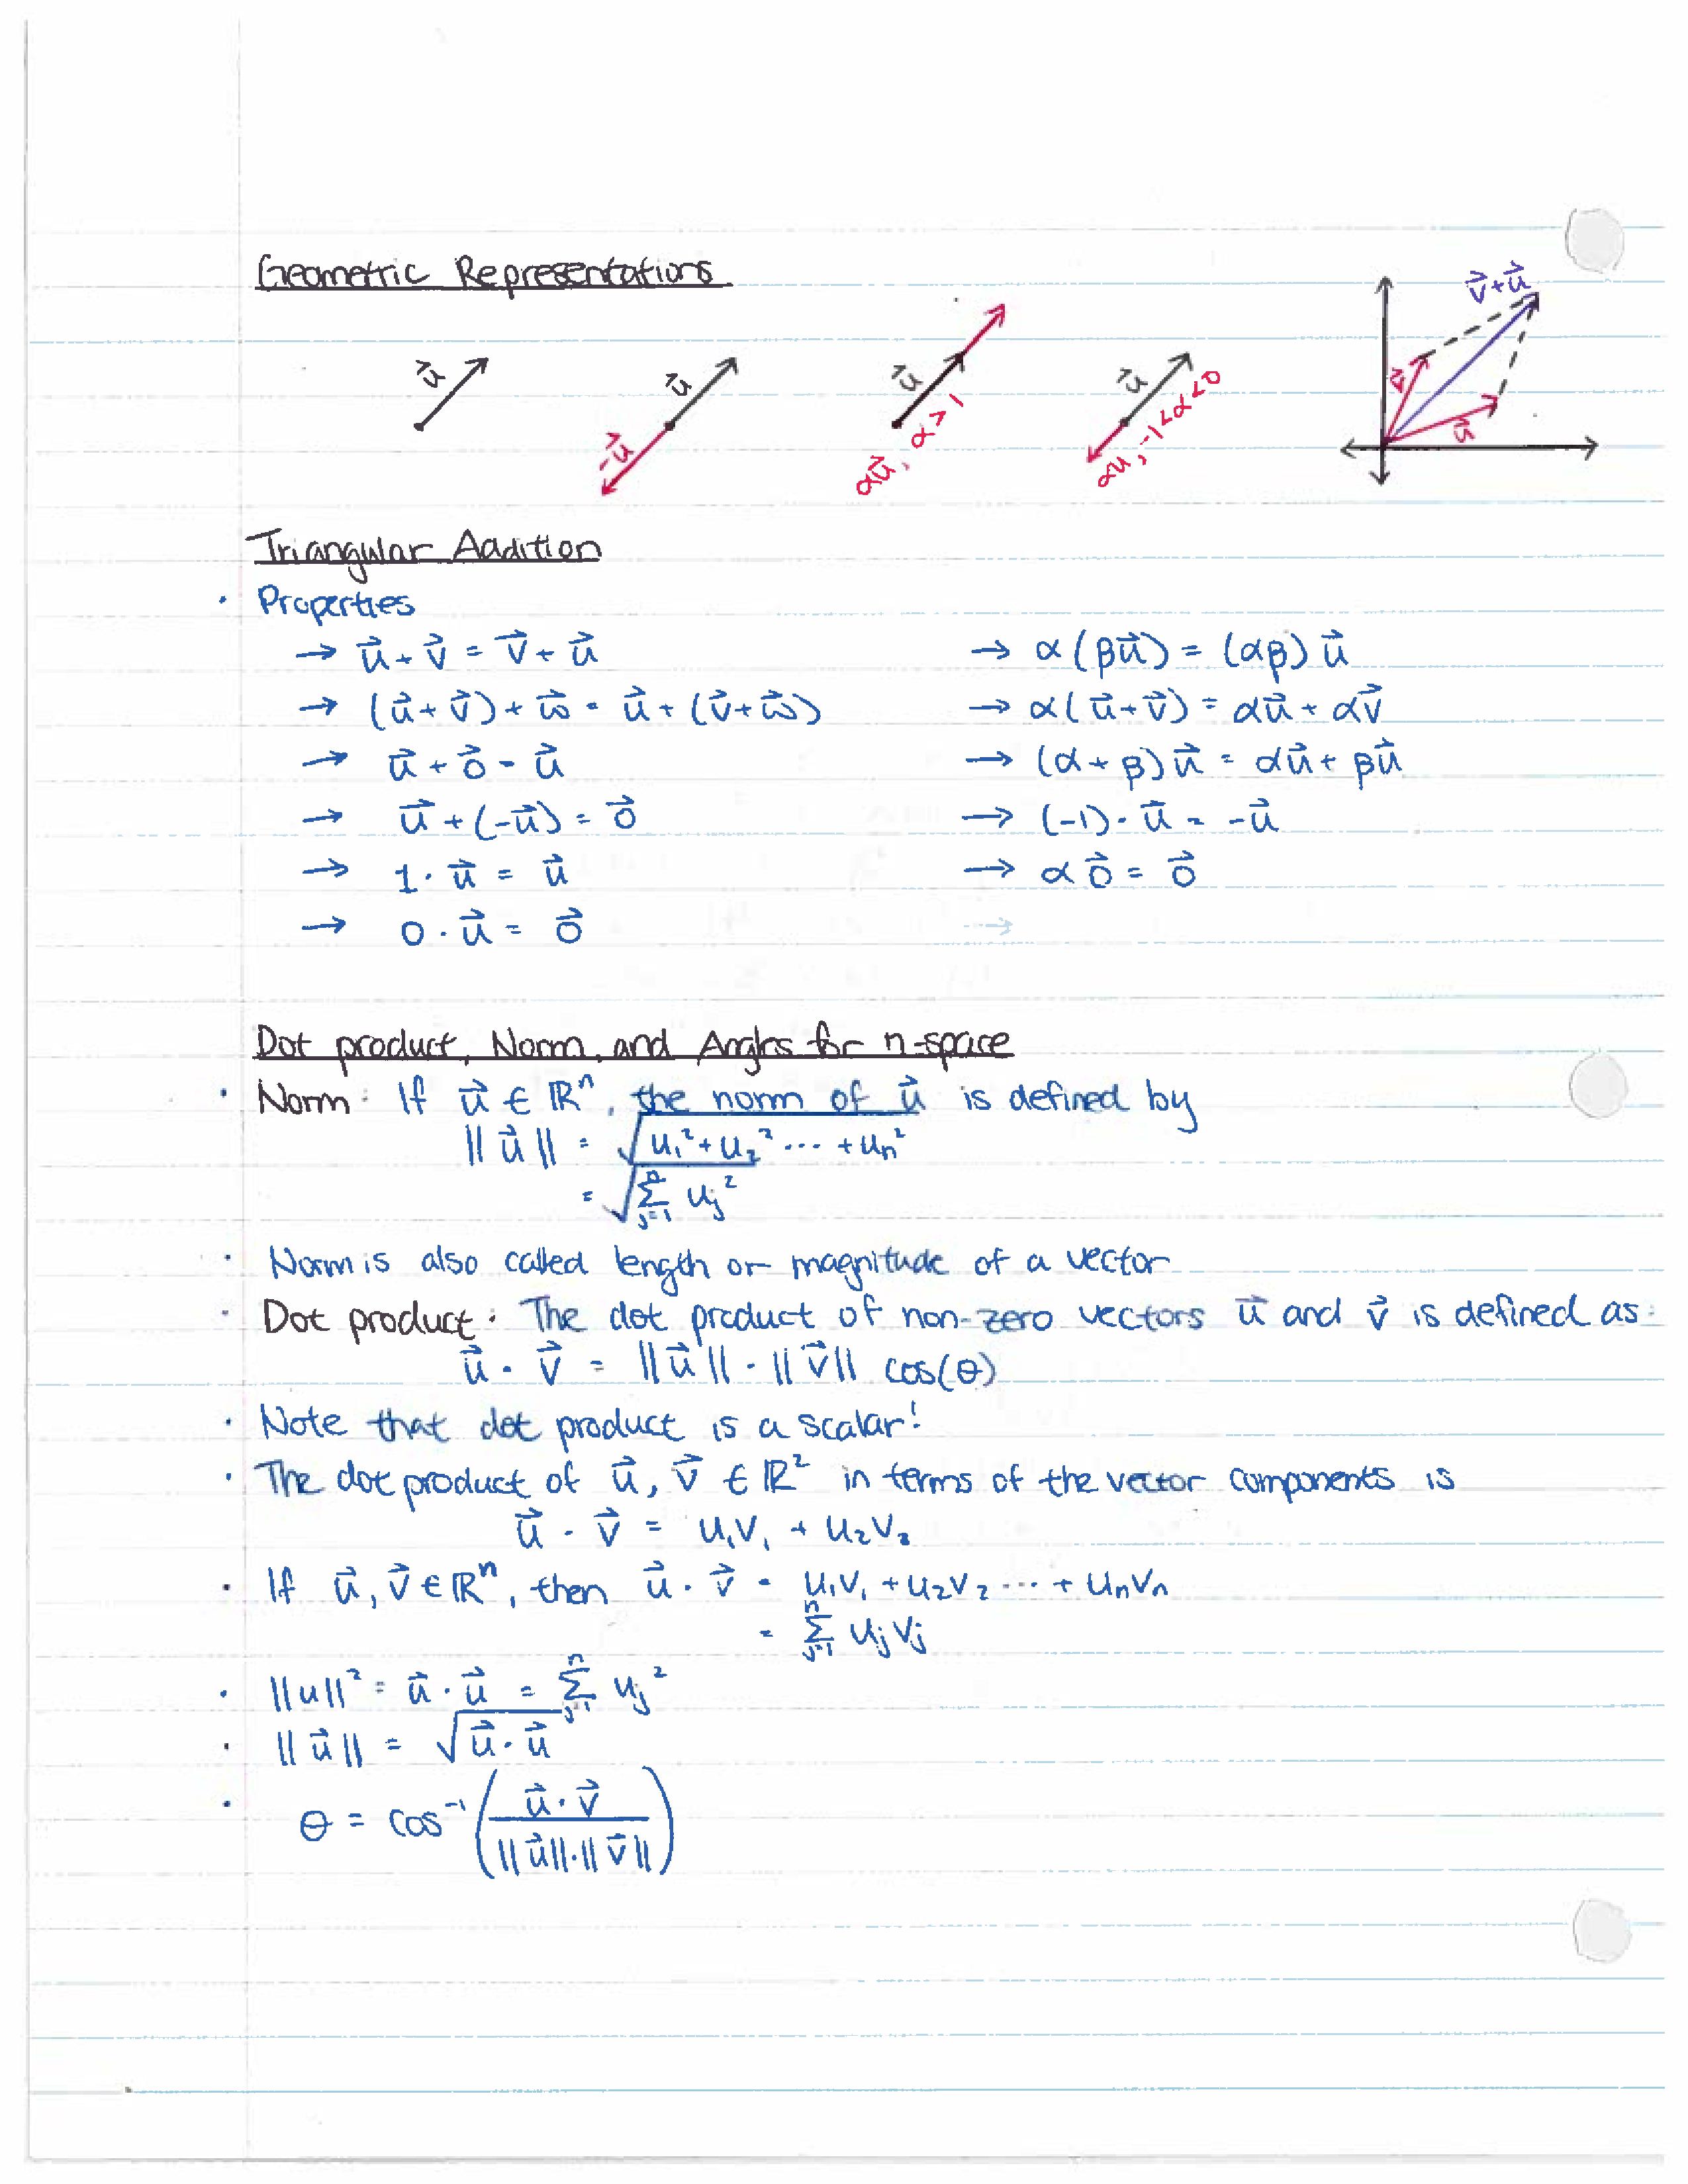 Geometric Representations
u⃗
u⃗
-u⃗
u⃗
αu⃗, α>1
u⃗
αu, -1<α<0
v⃗+u⃗
Triangular Addition
· Properties
→ u⃗ + v⃗ = v⃗ + u⃗
→ (u⃗ + v⃗) + w⃗ = u⃗ + (v⃗ + w⃗)
→ u⃗ + 0⃗ = u⃗
→ u⃗ + (-u⃗) = 0⃗
→ 1 · u⃗ = u⃗
→ 0 · u⃗ = 0⃗
→ α(βu⃗) = (αβ)u⃗
→ α(u⃗ + v⃗) = αu⃗ + αv⃗
→ (α + β)u⃗ = αu⃗ + βu⃗
→ (-1) · u⃗ = -u⃗
→ α0⃗ = 0⃗
→
Dot product, Norm, and Angles for n-space
· Norm: If u⃗ ∈ ℝⁿ, the norm of u⃗ is defined by
||u⃗|| = √(u₁² + u₂² ... + uₙ²)
= √(∑ⁿⱼ₌₁ uⱼ²)
· Norm is also called length or magnitude of a vector
· Dot product: The dot product of non-zero vectors u⃗ and v⃗ is defined as:
u⃗ · v⃗ = ||u⃗|| · ||v⃗|| cos(θ)
· Note that dot product is a scalar!
· The dot product of u⃗, v⃗ ∈ ℝ² in terms of the vector components is
u⃗ · v⃗ = u₁v₁ + u₂v₂
· If u⃗, v⃗ ∈ ℝⁿ, then u⃗ · v⃗ = u₁v₁ + u₂v₂ ... + uₙvₙ
= ∑ⁿⱼ₌₁ uⱼvⱼ
· ||u||² = u⃗ · u⃗ = ∑ⁿⱼ₌₁ uⱼ²
· ||u⃗|| = √(u⃗ · u⃗)
· θ = cos⁻¹(u⃗ · v⃗ / ||u⃗||·||v⃗||)